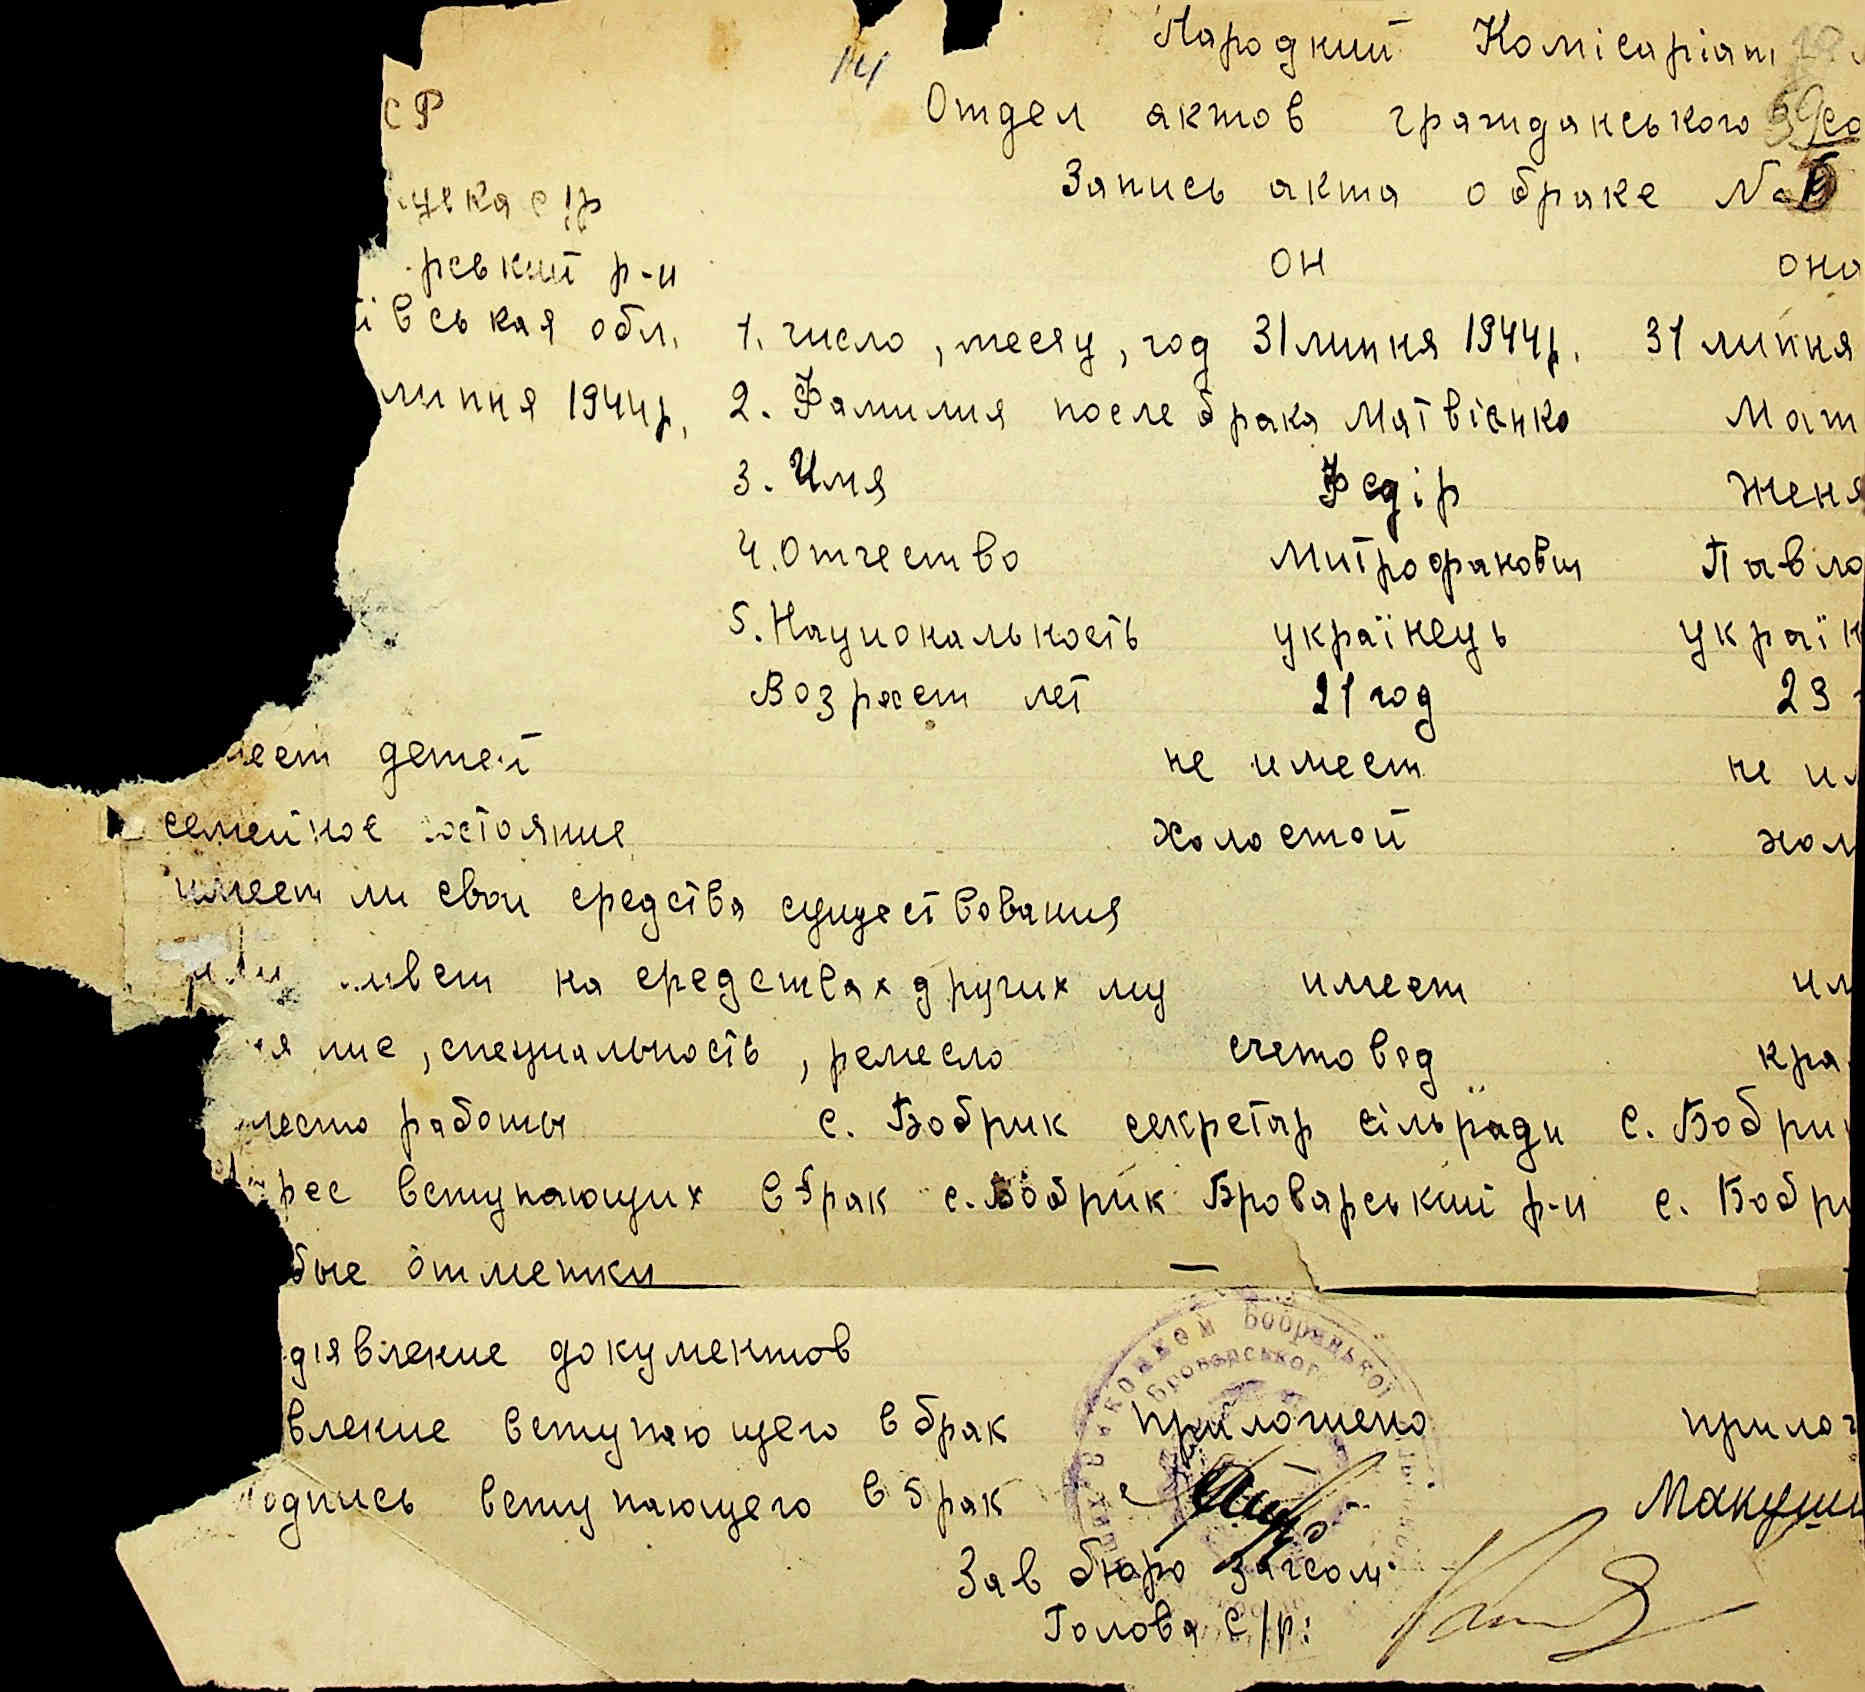 Народний Комісаріат
СР Отдел актов гражданського со
цька с/р Запись акта о браке №
рський р-н он она
івськая обл. 1. число, месяц, год 31 липня 1944 р. 31 липня
липня 1944 р. 2. Фамилия после брака Матвієнко Мат
3. Имя Федір Женя
4. Отчество Митрофанович Павло
5. Национальность українець україн
Возраст лет 21 год 23
меет детей не имеет не им
семейное состояние холостой хол
имеет ли свои средства существования
или живет на средствах других лиц имеет им
ние, специальность, ремесло счетовод кра
место работы с. Бобрик секретар сільради с. Бобрик
рес вступающих в брак с. Бобрик Броварський р-н с. Бобри
бые отметки —
д'явление документов
вление вступающего в брак приложено прилож
Подпись вступающего в брак Макуши
Зав бюро загсом
Голова с/р:
виконком Бобрицької
Броварського